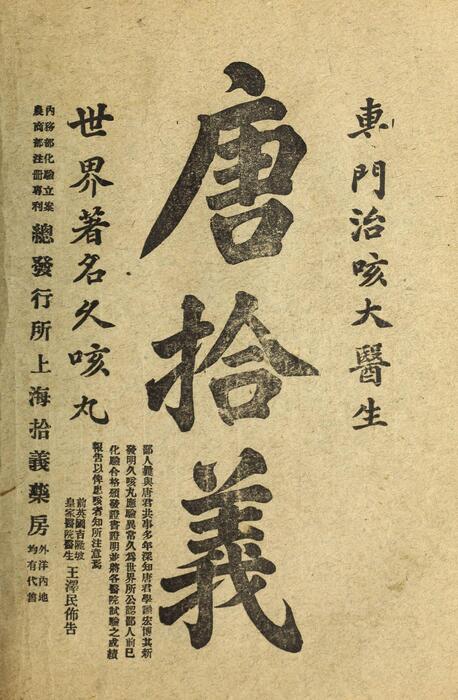 專門治咳大醫生
唐拾義
鄙人曩與唐君共事多年深知唐君學識宏博其新
發明久咳丸應驗異常久爲世界所公認鄙人前已
化驗合格頒發證書證明並將各醫院試驗之成績
報告以俾患咳者知所注意焉
前英國吉隆坡
皇家醫院醫生
王澤民佈告
世界著名久咳丸
內務部化驗立案
農商部注冊專利
總發行所上海拾義藥房
外洋內地
均有代售